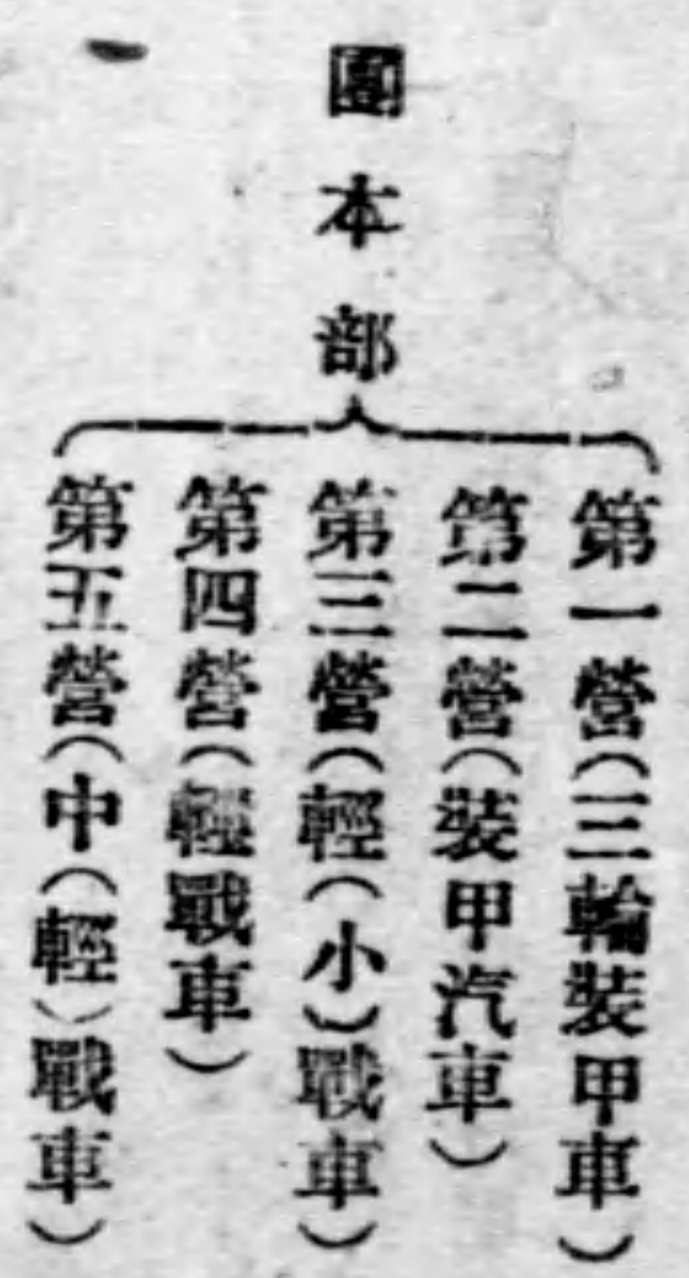 團本部
第一營(三輪裝甲車)
第二營(裝甲汽車)
第三營(輕(小)戰車)
第四營(輕戰車)
第五營(中(輕)戰車)